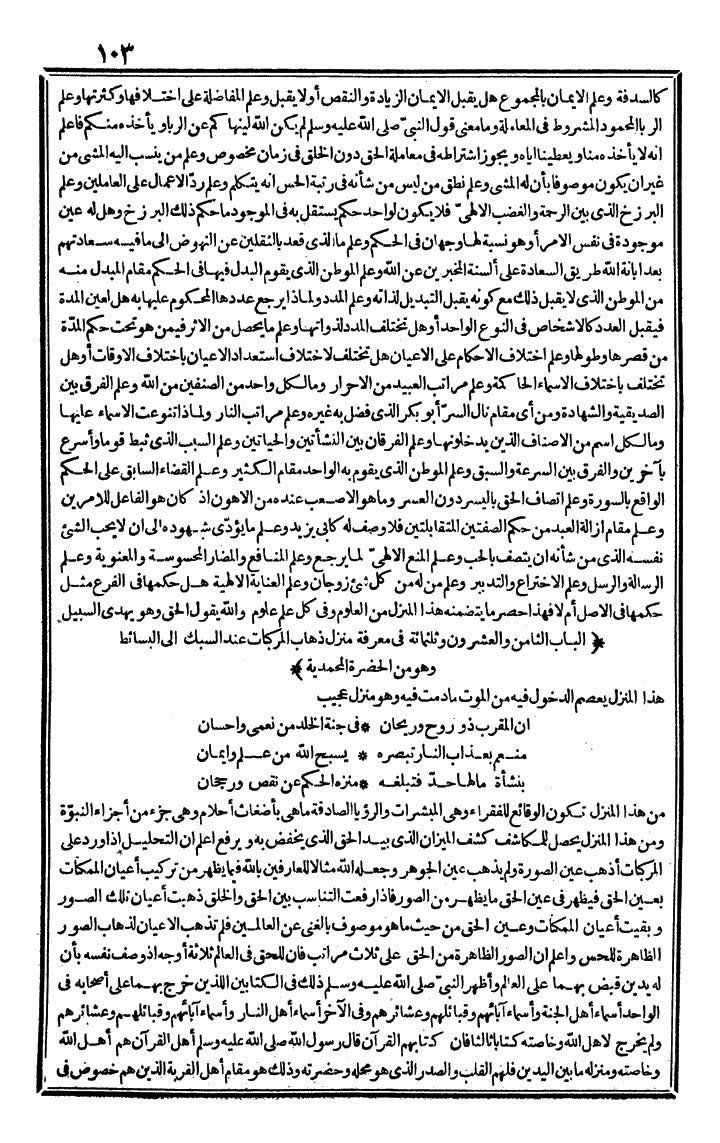 ١٠٣
كالسدفة وعلم الايمان بالمجموع هل يقبل الايمان الزيادة والنقص أولا يقبل وعلم المفاضلة على اختلافها وكثرتها وعلم
الربا المحمود المشروط فى المعاملة وما معنى قول النبىّ صلى الله عليه وسلم لم يكن الله لينها كم عن الربا ويأخذه منكم فاعلم
انه لا يأخذه مناو يعطينا اياه ويجوز اشتراطه فى معاملة الحق دون الخلق فى زمان مخصوص وعلم من ينسب اليه المشى من
غيران يكون موصوفا بأن له المشى وعلم نطق من ليس من شأنه فى رتبة الحس انه يتكلم وعلم ردّ الاعمال على العاملين وعلم
البرزخ الذى بين الرحمة والغضب الالهىّ فلا يكون لواحد حكم يستقل به فى الموجود ما حكم ذلك البرزخ وهل له عين
موجودة فى نفس الامر أو هو نسبة لها وجهان فى الحكم وعلم ما الذى قعد بالثقلين عن النهوض الى ما فيه سعادتهم
بعد ابانة الله طريق السعادة على ألسنة المخبرين عن الله وعلم الموطن الذى يقوم البدل فيها فى الحكم مقام المبدل منه
من الموطن الذى لا يقبل ذلك مع كونه يقبل التبديل لذاته وعلم المدد ولماذا يرجع عددها المحكوم عليها به هل لعين المدة
فيقبل العدد كالاشخاص فى النوع الواحد أو هل تختلف المدد لذواتها وعلم ما يحصل من الاثر فيمن هو تحت حكم المدّة
من قصرها وطولها وعلم اختلاف الاحكام على الاعيان هل تختلف لاختلاف استعداد الاعيان باختلاف الاوقات أو هل
تختلف باختلاف الاسماء الحاكمة وعلم مراتب العبيد من الاحرار ومالكل واحد من الصنفين من الله وعلم الفرق بين
الصديقية والشهادة ومن أى مقام نال السرّ أبو بكر الذى فضل به غيره وعلم مراتب النار ولماذا تنوعت الاسماء عليها
ومالكل اسم من الاصناف الذين يدخلونها وعلم الفرقان بين النشأتين والحياتين وعلم السبب الذى ثبط قوما وأسرع
بآخرين والفرق بين السرعة والسبق وعلم الموطن الذى يقوم به الواحد مقام الكثير وعلم القضاء السابق على الحكم
الواقع بالسورة وعلم اتصاف الحق باليسر دون العسر وما هو الاصعب عنده من الاهون اذ كان هو الفاعل للامرين
وعلم مقام ازالة العبد من حكم الصفتين المتقابلتين فلا وصف له كابى يزيد وعلم ما يؤدّى شهوده الى ان لا يحب الشئ
نفسه الذى من شأنه ان يتصف بالحب وعلم المنع الالهىّ لما يرجع وعلم المنافع والمضار المحسوسة والمعنوية وعلم
الرسالة والرسل وعلم الاختراع والتدبير وعلم من له من كل شئ زوجان وعلم العناية الالهية هل حكمها فى الفرع مثل
حكمها فى الاصل أم لا فهذا حصر ما يتضمنه هذا المنزل من العلوم وفى كل علم علوم والله يقول الحق وهو يهدى السبيل
﴿ الباب الثامن والعشرون وثلثمائة فى معرفة منزل ذهاب المركبات عند السبك الى البسائط
وهو من الحضرة المحمدية ﴾
هذا المنزل يعصم الدخول فيه من الموت مادمت فيه وهو منزل عجيب
ان المقرب ذو روح وريحان * فى جنة الخلد من نعمى واحسان
منعم بعذاب النار تبصره * يسبح الله من علم وايمان
بنشأة مالها حدّ فتبلغه * منزه الحكم عن نقص ورجحان
من هذا المنزل تكون الوقائع للفقراء وهى المبشرات والرؤيا الصادقة ما هى بأضغاث أحلام وهى جزء من أجزاء النبوّة
ومن هذا المنزل يحصل للمكاشف كشف الميزان الذى بيد الحق الذى يخفض به ويرفع اعلم ان التحليل اذا ورد على
المركبات أذهب عين الصورة ولم يذهب عين الجوهر وجعله الله مثالا للعارفين بالله فيما يظهر من تركيب أعيان الممكنات
بعين الحق فيظهر فى عين الحق ما يظهر من الصور فاذا رفعت التناسب بين الحق والخلق ذهبت أعيان تلك الصور
وبقيت أعيان الممكنات وعين الحق من حيث ما هو موصوف بالغنى عن العالمين فلم تذهب الاعيان لذهاب الصور
الظاهرة للحس واعلم ان الصور الظاهرة من الحق على ثلاث مراتب فان للحق فى العالم ثلاثة أوجه اذ وصف نفسه بأن
له يدين قبض بهما على العالم وأظهر النبىّ صلى الله عليه وسلم ذلك فى الكتابين اللذين خرج بهما على أصحابه فى
الواحد أسماء أهل الجنة وأسماء آبائهم وقبائلهم وعشائرهم وفى الآخر أسماء أهل النار وأسماء آبائهم وقبائلهم وعشائرهم
ولم يخرج لاهل الله وخاصته كتابا ثالثا فان كتابهم القرآن قال رسول الله صلى الله عليه وسلم أهل القرآن هم أهل الله
وخاصته ومنزله ما بين اليدين فلهم القلب والصدر الذى هو محله وحضرته وذلك هو مقام أهل القربة الذين هم خصوص فى